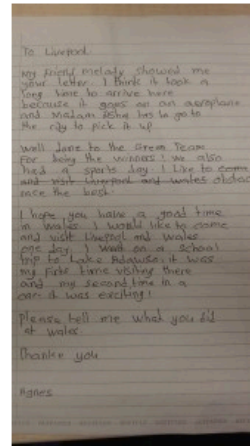 To Liverpool
My friend melody showed me
your letter. I think it took a
long time to arrive here
because it goes on an aeroplane
and Madam Esther has to go to
the city to pick it up
Well done to the Green Team
for being the winners! we also
had a sports day I like to come
and visit Liverpool and wales obstacle
race the best.
I hope you have a good time
in Wales. I would like to come
and visit Liverpool and Wales
one day. I went on a school
trip to Lake Adawso. it was
my first time visiting there
and my second time in a
car. it was exciting!
Please tell me what you did
at wales.
Thanke you
Agnes